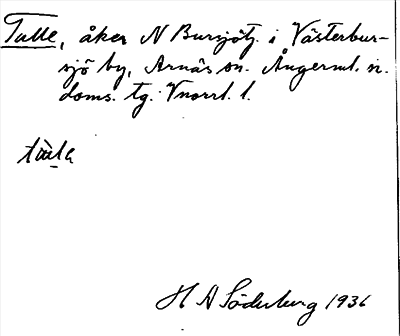 Talle, åker N Bursjötj. i Västerbur-
sjö by, Arnäs sn. Ångerml. n.
doms. tg. Vnorrl. l.
H A Söderberg 1936